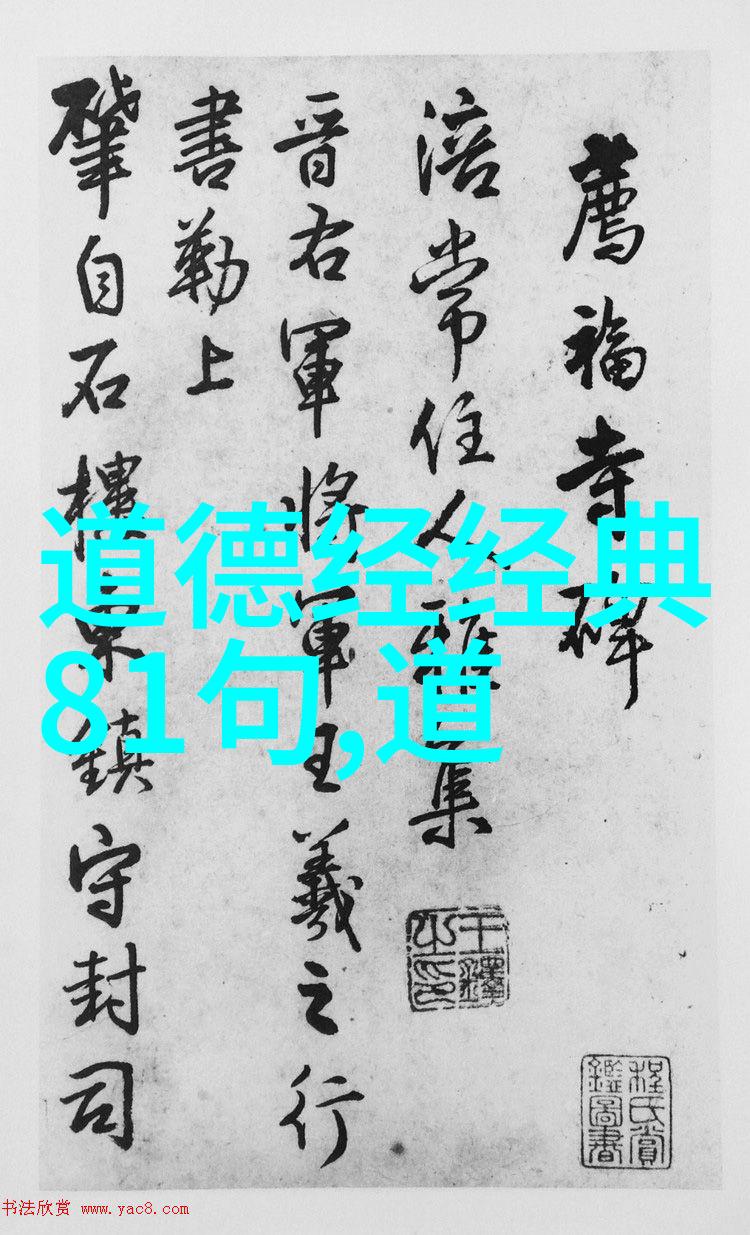 薦福寺碑
涪常住人雅集
晋右軍將軍王羲之行
書勒上
肇自石樓鎮守封司
王鐸之印
程氏賞鑑圖書
道德经经典
81句,道
书法欣赏 www.yac8.com